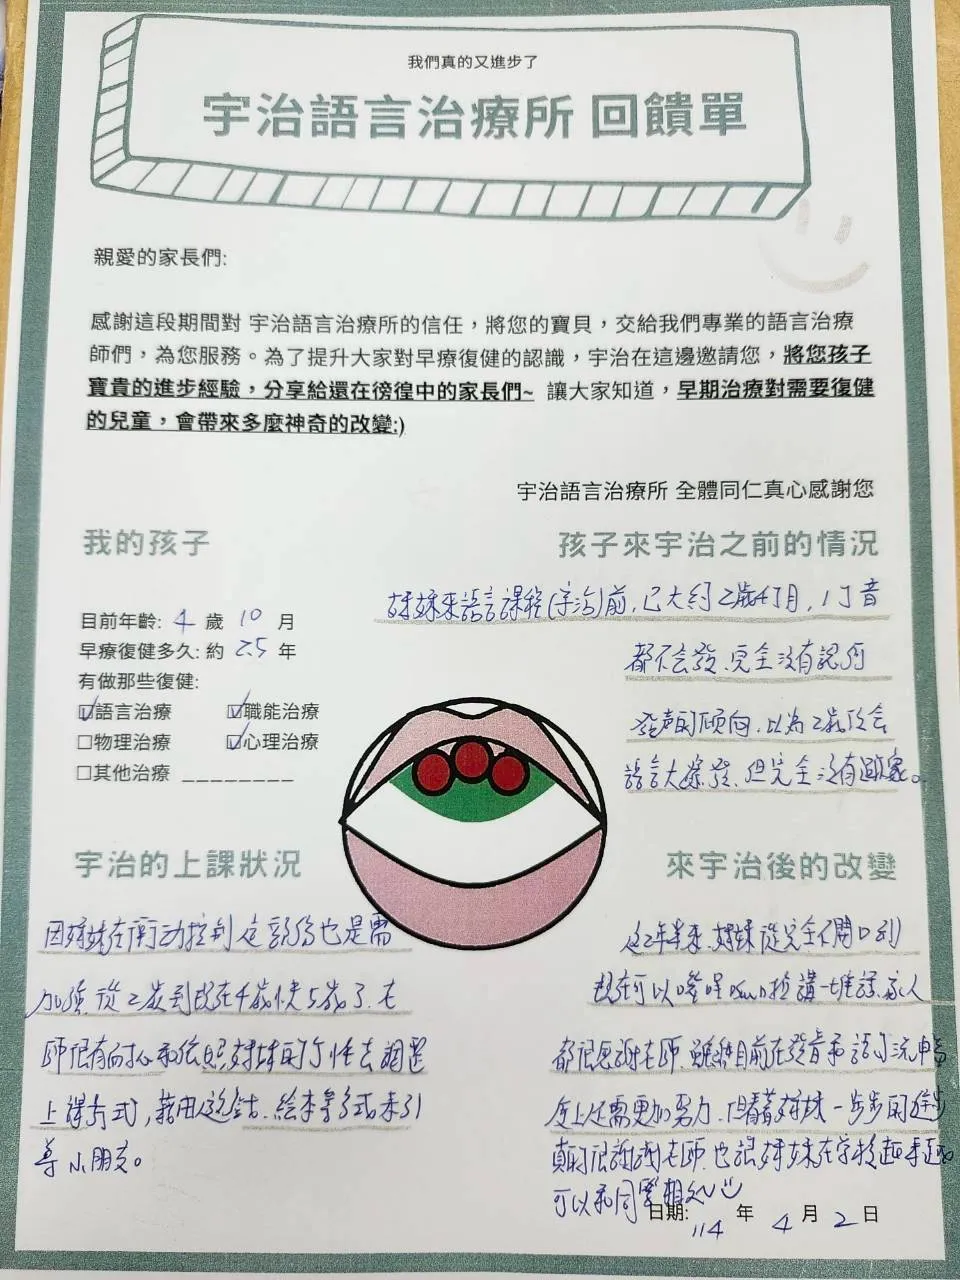 我們真的又進步了
宇治語言治療所 回饋單
親愛的家長們:
感謝這段期間對 宇治語言治療所的信任，將您的寶貝，交給我們專業的語言治療
師們，為您服務。為了提升大家對早療復健的認識，宇治在這邊邀請您，將您孩子
寶貴的進步經驗，分享給還在徬徨中的家長們~ 讓大家知道，早期治療對需要復健
的兒童，會帶來多麼神奇的改變:)
宇治語言治療所 全體同仁真心感謝您
我的孩子
目前年齡: 4 歲 10 月
早療復健多久: 約 2.5 年
有做那些復健:
☑語言治療 ☑職能治療
☐物理治療 ☑心理治療
☐其他治療 ________
孩子來宇治之前的情況
妹妹來語言課程(宇治)前，已大約2歲4個月，1個音
都不會發、完全沒有認何
發声的倾向，以為2歲后會
語言大爆發，但完全沒有
宇治的上課狀況
因妹妹在衝动控制這部份也是需
加強，從2歲到現在4歲快5歲了，老
師很有耐心和依照妹妹的个性去調整
上課方式，藉由繪本等方式來引
導小朋友。
來宇治後的改變
這2年半來，妹妹從完全不開口到
現在可以講一堆話，家人
都很感謝老師，雖然目前在發音和語句流暢
度上还需更加努力，但看著妹妹一步步的進步
真的很謝謝老師，也讓妹妹在学校越來越
可以和同學相处
日期: 114 年 4 月 2 日